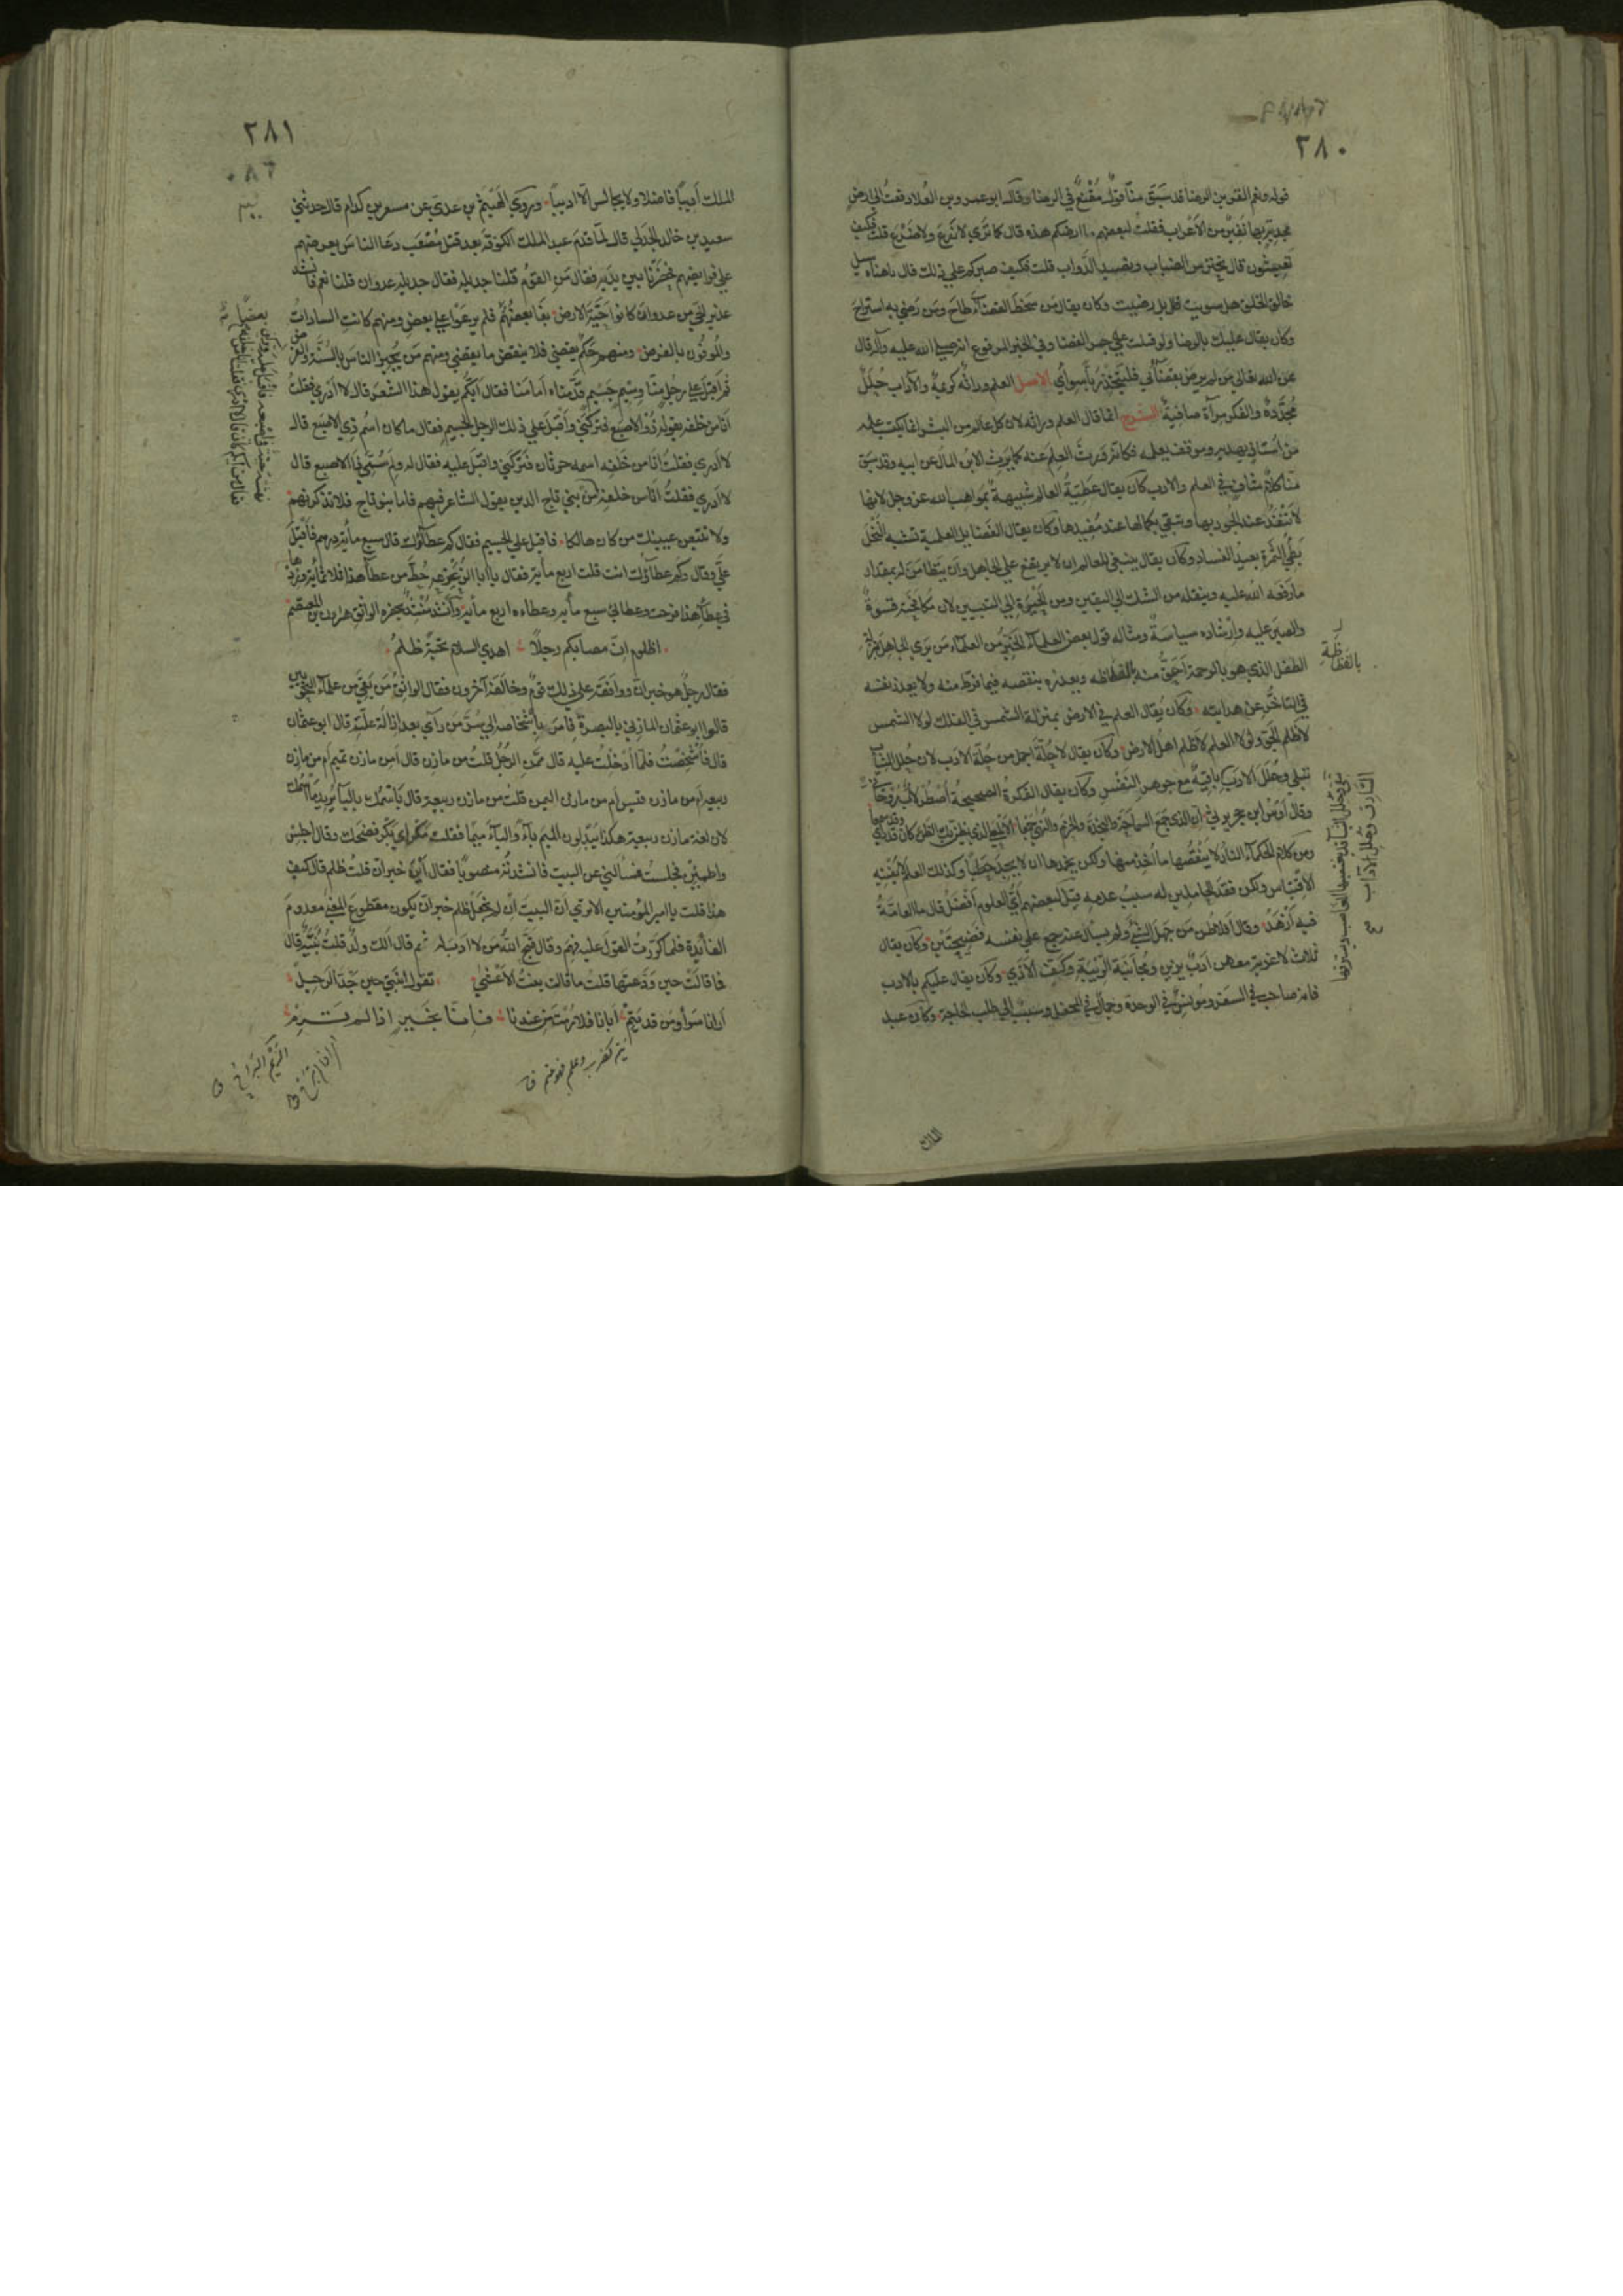 ٢٨٠
قوله ونعم القرين الرضا قد سبق منا قول مقنع في الرضا وقال ابو عمرو بن العلا دفعت الي ارض
مجدبة بها نفير من الأعراب فقلت لبعضهم ما ارضكم هذه قال كما تري لا زرع ولا ضرع قلت فكيف
تعيشون قال نحترش الضباب ونصيد الدواب قلت فكيف صبركم علي ذلك قال يا هناه سل
خالق الخلق هل سويت قال بل رضيت وكان يقال من سخط القضاء طاح ومن رضي به استراح
وكان يقال عليك بالرضا ولو قلبت علي جمر الغضا وفي الخبر المرفوع انه صلي الله عليه وآله قال
عن الله تعالي من لم يرض بقضائي فليتخذ ربا سوائي الاصل العلم وراثة كريمة والآداب حلل
مجددة والفكر مرآة صافية الشرح انما قال العلم وراثة لان كل عالم من البشر انما يكتسب علمه
من استاذ يهديه وموقف يعلمه فكانه ورث العلم عنه كما يرث الابن المال عن ابيه وقد سبق
منا كلام شاف في العلم والادب كان يقال عطية العالم شبيهة بمواهب الله عز وجل لانها
لا تنفد عند الجود بها وتبقي بكمالها عند مفيدها وكان يقال الفضايل العلمية تشبه النخل
بطي الثمرة بعيد الفساد وكان يقال ينبغي للعالم ان لا يرتفع علي الجاهل وان يتطامن له بمقدار
ما رفعه الله عليه وينقله من الشك الي اليقين ومن الحيرة الي التبيين لان مكافحته قسوة
والصبر عليه وارشاده سياسة ومثاله قول بعض العلماء الخير من العلماء من يري الجاهل بمنزلة
الطفل الذي هو بالرحمة احق منه بالغلظة ويعذره بنقصه فيما فرط منه ولا يعذر نفسه
في التأخر عن هدايته وكان يقال العلم في الارض بمنزلة الشمس في الفلك لولا الشمس
لأظلم الجو ولولا العلم لأظلم اهل الارض وكان يقال لا حلة اجمل من حلة الادب لان حلل الثياب
تبلي وحلل الادب باقية مع جوهر النفس وكان يقال الفكرة الصحيحة أصطرلاب روحاني
وقال أوس ابن حجر يرثي ان الذي جمع السماحة والنجدة والحزم والنهي جمعا الألمعي الذي يظن بك الظن كان قد رأي
وقد سمعا
ومن كلام الحكماء النار لا ينقصها ما اخذ منها ولكن يخمدها ان لا تجد حطبا وكذلك العلم لا يفنيه
الاقتباس ولكن فقد الحاملين له سبب عدمه قيل لبعضهم أي العلوم أفضل قال ما العامة
فيه أزهد وقال افلاطن من جهل الشي ولم يسأل عنه جمع علي نفسه فضيحتين وكان يقال
ثلاث لا غربة معهن ادب يزين ومجانبة الريبة وكف الأذي وكان يقال عليكم بالادب
فانه صاحب في السفر ومونس في الوحدة وجمال في المحفل وسبب الي طلب الحاجة وكان عبد
الملك
٢٨١
الملك أديبا فاضلا ولا يجالس الا اديبا وروي الهيثم بن عدي عن مسعر بن كدام قال حدثني
سعيد بن خالد الجدلي قال لما قدم عبد الملك الكوفة بعد قتل مصعب دعا الناس يعرضهم
علي فرايضهم فحضرنا بين يديه فقال من القوم قلنا جديلة فقال جديلة عدوان قلنا نعم فانشد
عذير الحي من عدوان كانوا حية الارض بغا بعضهم فلم يرعوا علي بعض ومنهم كانت السادات
والموفون بالقرض ومنهم حكم يقضي فلا ينقض ما يقضي ومنهم من يجيز الناس بالسنة والفرض
ثم اقبل علي رجل منا وسيم جسيم قدمناه أمامنا فقال أيكم يقول هذا الشعر قال لا أدري فقلت
أنا من خلفه يقوله ذو الاصبع فتركني وأقبل علي ذلك الرجل الجسيم فقال ما كان اسم ذي الاصبع قال
لا أدري فقلت انا من خلفه اسمه حرثان فتركني واقبل عليه فقال له ولم سمي ذا الاصبع قال
لا ادري فقلت أنا من خلفه
من بني ناج الذين يقول الشاعر فيهم فاما بنو ناج فلا تذكرنهم
ولا تتبعن عينيك من كان هالكا فاقبل علي الجسيم فقال كم عطاؤك قال سبع مائة درهم فأقبل
علي وقال وكم عطاؤك انت قلت اربع مائة فقال يا أبا الزعيزعة حط من عطاء هذا ثلاثمائة وزدها
في عطاء هذا فرحت وعطائي سبع مائة وعطاءه اربع مائة وأنشد منشد بحضرة الواثق هارون بن المعتصم
اظلوم ان مصابكم رجلا اهدي السلام تحية ظلم
فقال رجل هو خبر ان ووافقه علي ذلك قوم وخالفه آخرون فقال الواثق من بقي من علماء النحويين
قالوا ابو عثمان المازني بالبصرة فامر بإشخاصه الي سر من رآي بعد ازالة علته قال ابو عثمان
قال فأشخصت فلما أدخلت عليه قال ممن الرجل قلت من مازن قال أمن مازن تميم أم من مازن
ربيعه ام من مازن قيس ام من مازن اليمن قلت من مازن ربيعه قال باسمك بالباء يريد ما اسمك
لان لغة مازن ربيعة هكذا يبدلون الميم باء والباء ميما فقلت مكر أي بكر فضحك وقال اجلس
واطمئن فجلست فسألني عن البيت فانشدته منصوبا فقال أين خبر ان قلت ظلم قال كيف
هذا قلت يا امير المؤمنين الا تري أن البيت ان لم يجعل ظلم خبر ان يكون مقطوع المعني معدوم
الفائدة فلما كررت القول عليه فهم وقال قبح الله من لا ادب له ثم قال الك ولد قلت بنية قال
فما قالت حين ودعتها قلت ما قالت بنت الأعشي تقول ابنتي حين جد الرحيل
أرانا سوأ ومن قد يتم أبانا فلا رمت من عندنا فإنا بخير اذا لم ترم